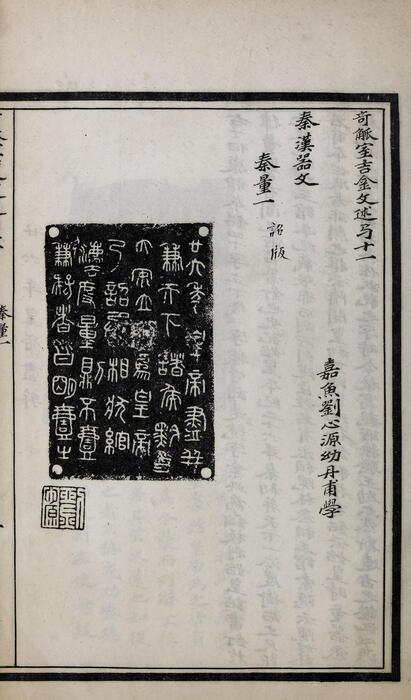 奇觚室吉金文述弓十一
嘉魚劉心源幼丹甫學
秦漢器文
秦量一 詔版
廿六年皇帝盡并
兼天下諸侯黔首
大安立號爲皇帝
乃詔丞相狀綰
灋度量則不壹
歉疑者皆明壹之
秦量一